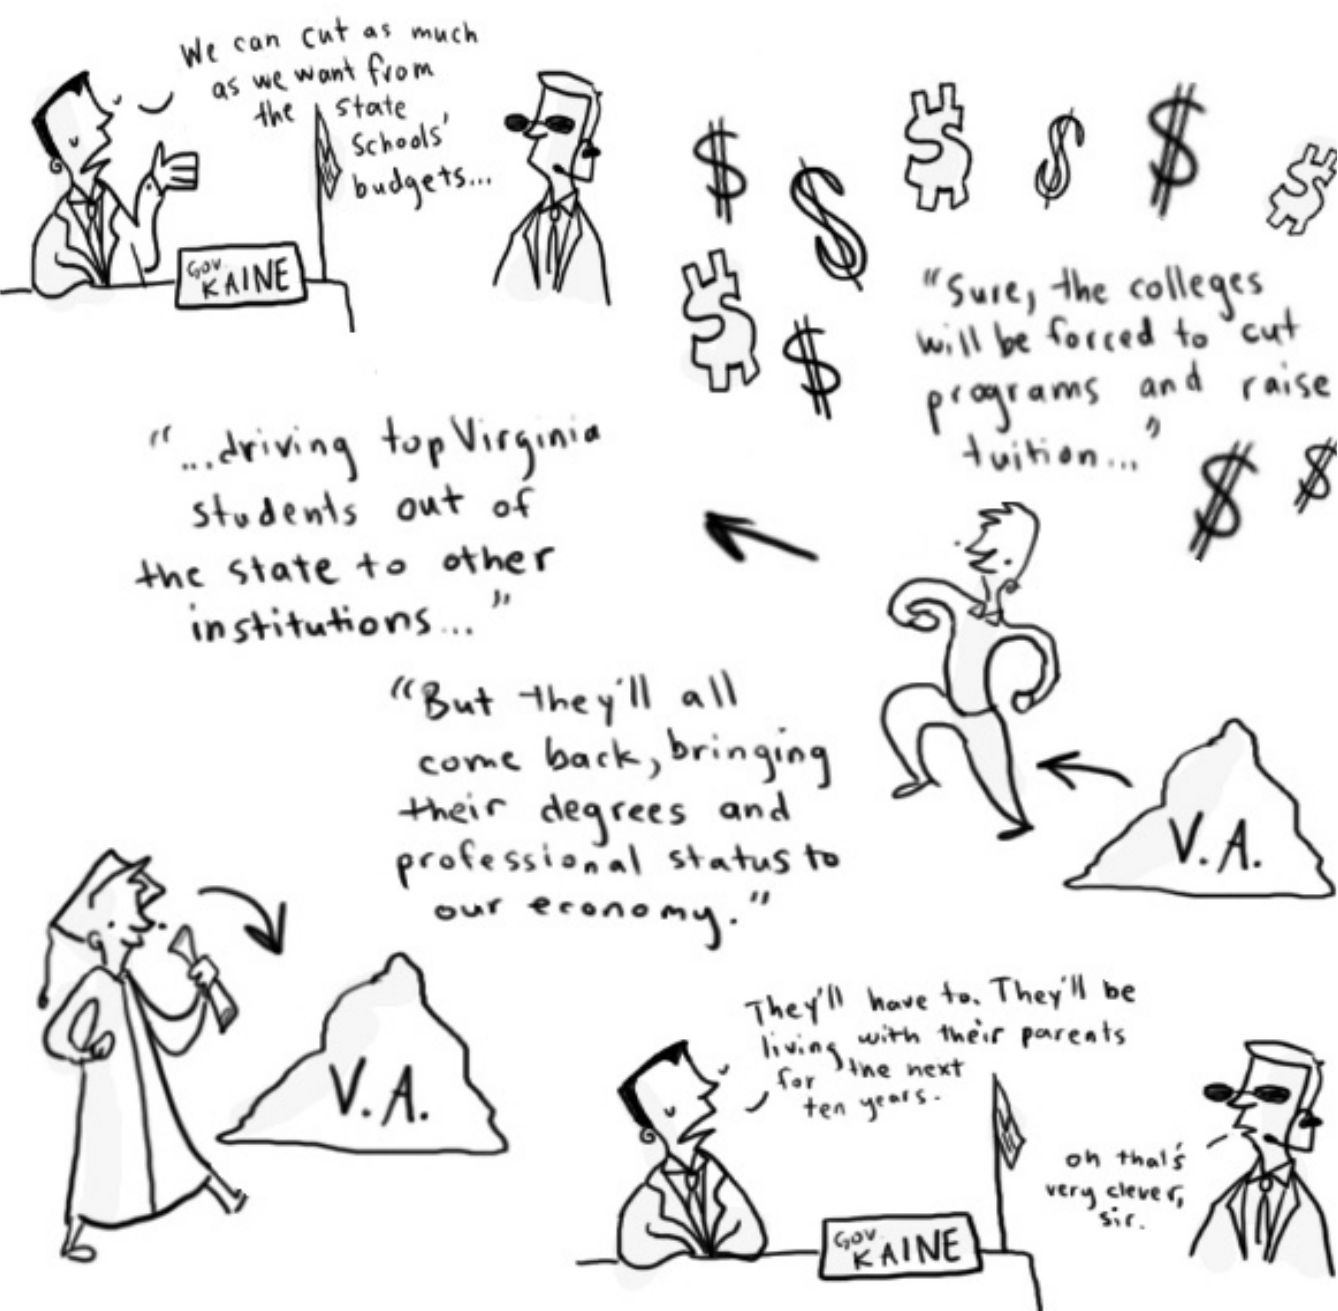 We can cut as much
as we want from
the state
schools'
budgets...
GOV.
KAINE
"Sure, the colleges
will be forced to cut
programs and raise
tuition..."
"...driving top Virginia
students out of
the state to other
institutions..."
"But they'll all
come back, bringing
their degrees and
professional status to
our economy."
V.A.
V.A.
They'll have to. They'll be
living with their parents
for the next
ten years.
oh that's
very clever,
sir.
GOV.
KAINE